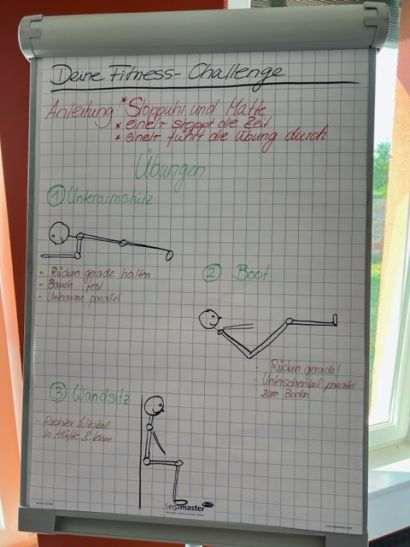 Deine Fitness-Challenge
Anleitung * Stoppuhr und Matte
* eine/r stoppt die Zeit
* eine/r führt die Übung durch
Übungen
① Unterarmstütz
- Rücken gerade halten
- Bauch fest
- Unterarme parallel
② Boot
- Rücken gerade!
- Unterschenkel parallel
zum Boden
③ Wandsitz
- Rechter Winkel
in Hüfte & Knie
Legamaster